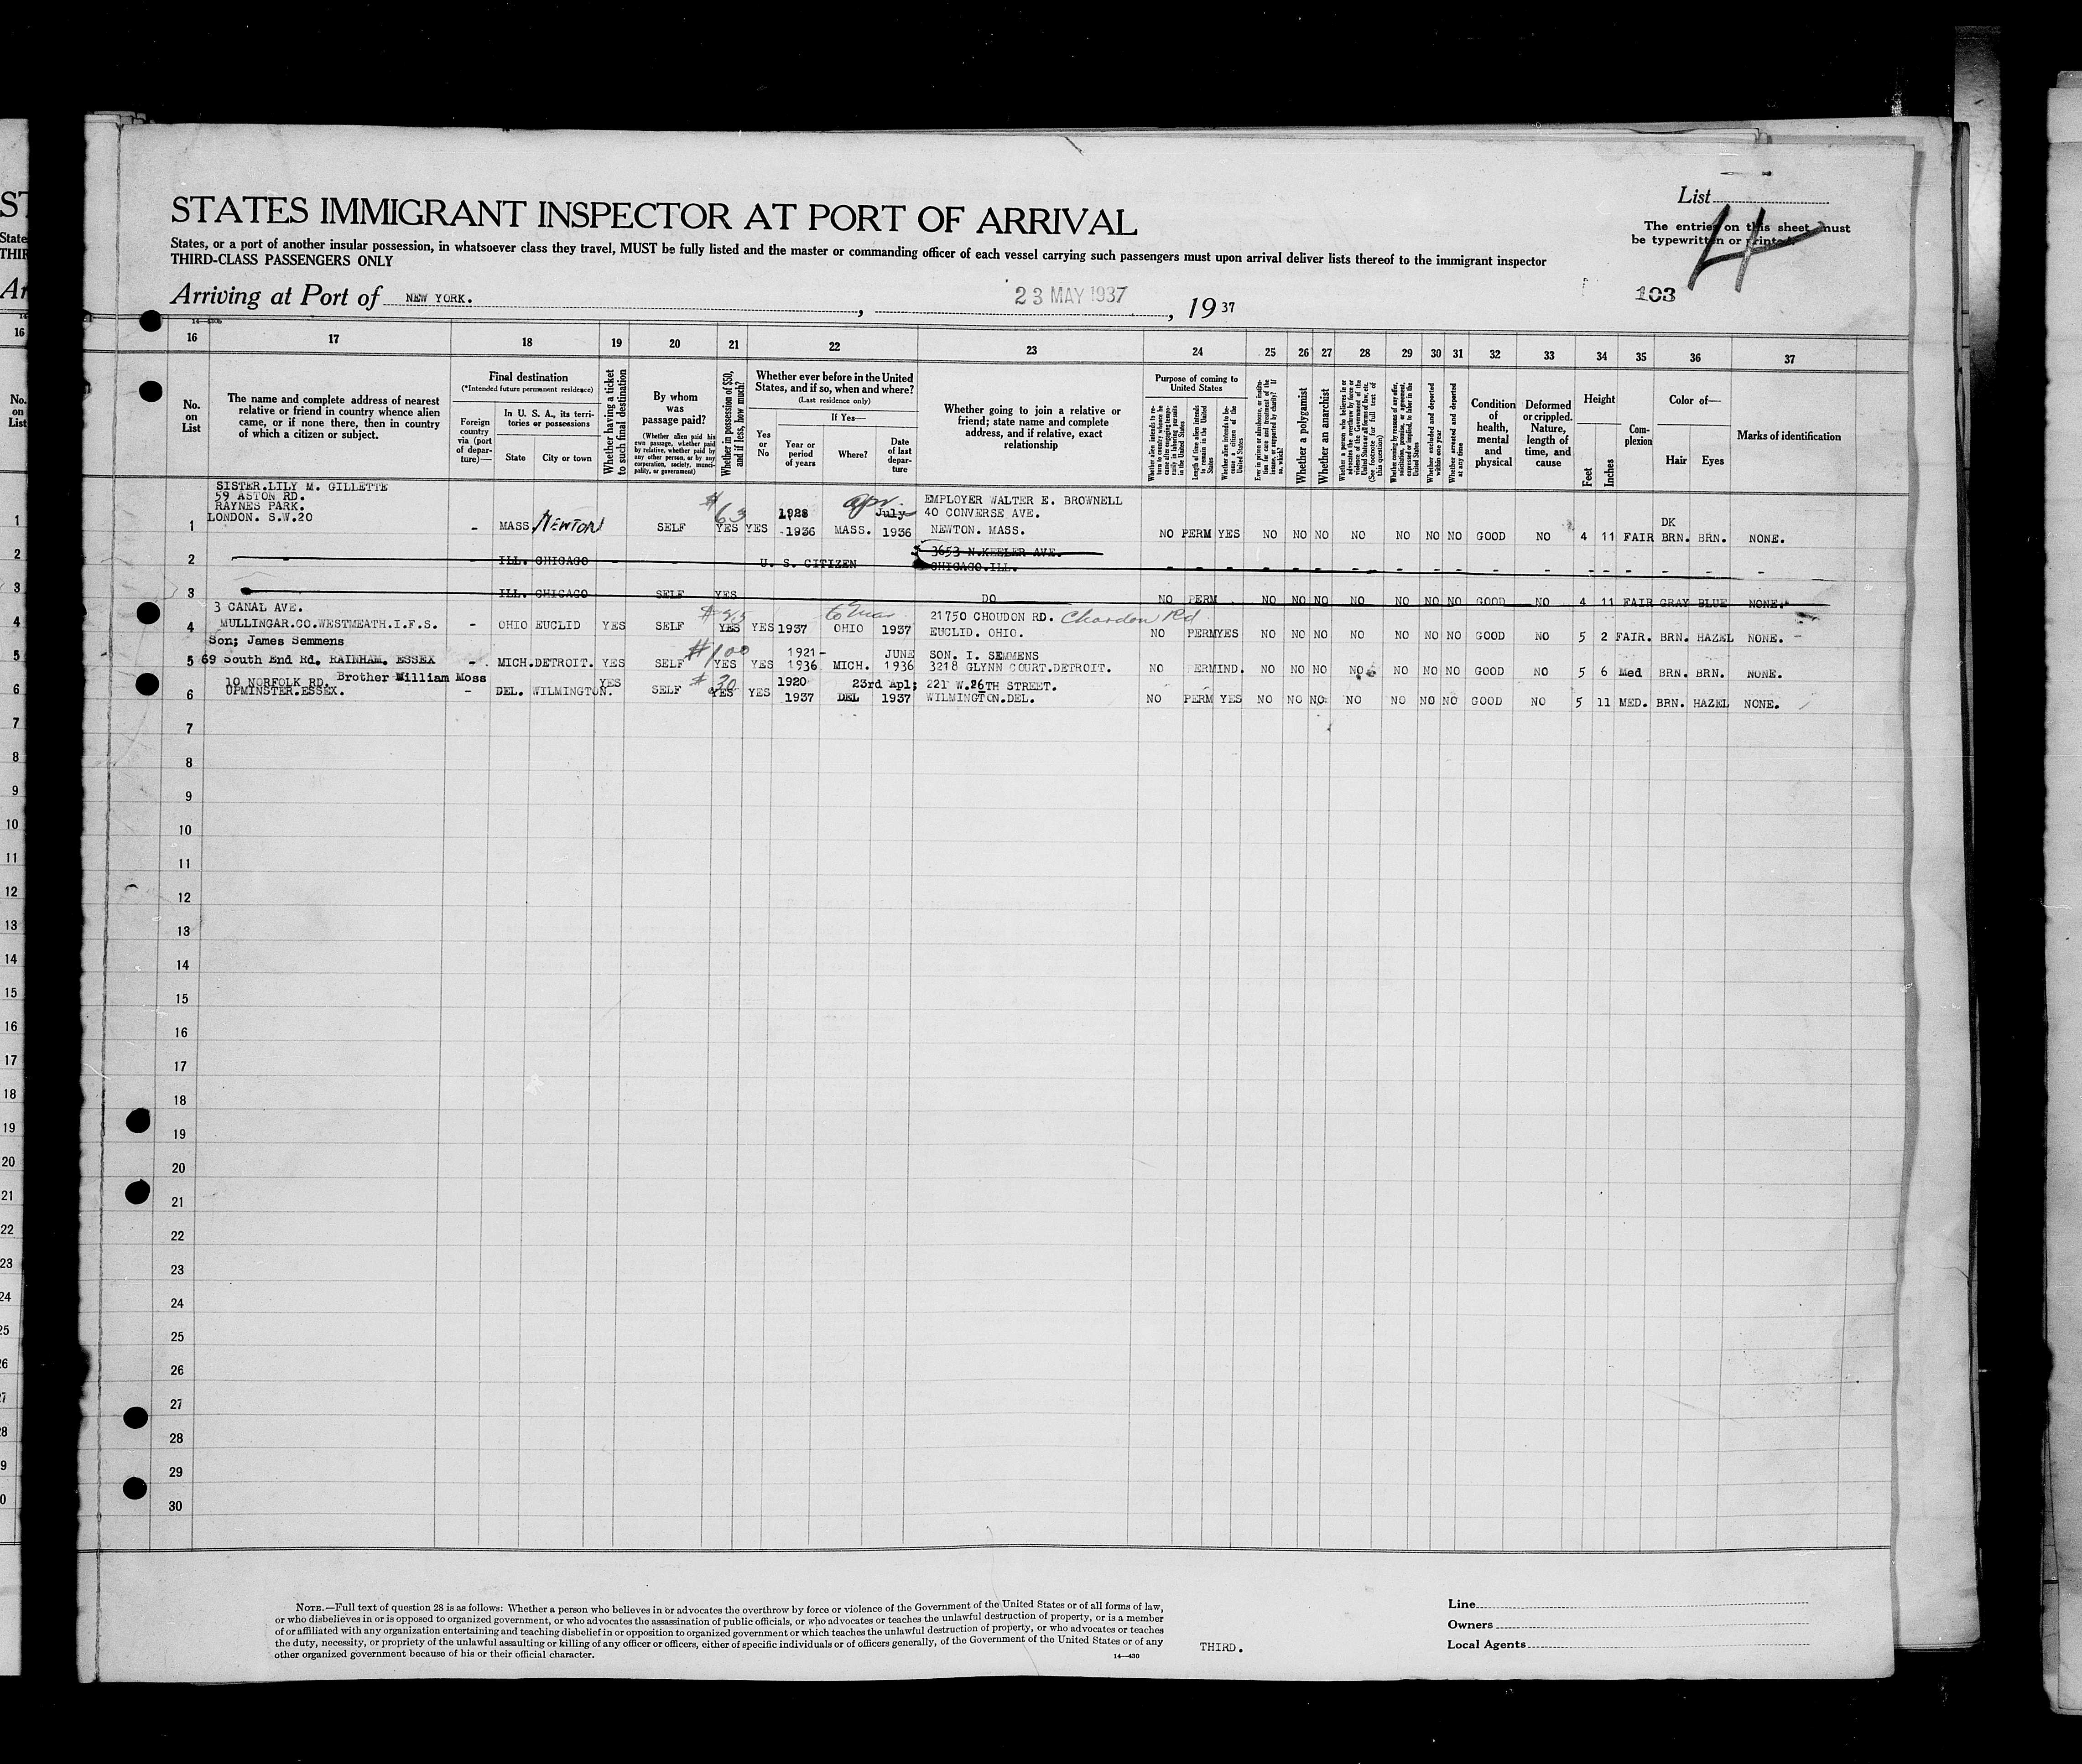 STATES IMMIGRANT INSPECTOR AT PORT OF ARRIVAL
States, or a port of another insular possession, in whatsoever class they travel, MUST be fully listed and the master or commanding officer of each vessel carrying such passengers must upon arrival deliver lists thereof to the immigrant inspector
THIRD-CLASS PASSENGERS ONLY
List
The entries on this sheet must
be typewritten or printed
4
103
Arriving at Port of NEW YORK. , 23 MAY 1937 , 19 37
16 17 18 19 20 21 22 23 24 25 26 27 28 29 30 31 32 33 34 35 36 37
No. on List
The name and complete address of nearest relative or friend in country whence alien came, or if none there, then in country of which a citizen or subject.
Final destination
(*Intended future permanent residence)
Foreign country via (port of departure)—
In U. S. A., its territories or possessions
State
City or town
Whether having a ticket to such final destination
By whom was passage paid?
(Whether alien paid his own passage, whether paid by relative, whether paid by any other person, or by any corporation, society, municipality, or government)
Whether in possession of $50, and if less, how much?
Whether ever before in the United States, and if so, when and where?
(Last residence only)
Yes or No
If Yes—
Year or period of years
Where?
Date of last departure
Whether going to join a relative or friend; state name and complete address, and if relative, exact relationship
Purpose of coming to United States
Length of time alien intends to remain in the United States
Whether alien intends to become a citizen of the United States
Whether a polygamist
Whether an anarchist
Whether excluded and deported within one year
Whether arrested and deported at any time
Condition of health, mental and physical
Deformed or crippled. Nature, length of time, and cause
Height
Feet
Inches
Complexion
Color of—
Hair
Eyes
Marks of identification
SISTER.LILY M. GILLETTE
59 ASTON RD.
RAYNES PARK.
LONDON. S.W.20
1 - MASS NEWTON SELF $63 YES YES 1928 -1936 MASS. Apr. July 1936 EMPLOYER WALTER E. BROWNELL
40 CONVERSE AVE.
NEWTON. MASS. NO PERM YES NO NO NO NO NO NO NO GOOD NO 4 11 FAIR DK BRN. BRN. NONE.
2 - ILL. CHICAGO - - U. S. CITIZEN 3653 N.KEELER AVE.
CHICAGO.ILL. - - - - - - - - - - - - - - - - - -
3 ILL. CHICAGO SELF YES DO NO PERM NO NO NO NO NO NO NO GOOD NO 4 11 FAIR GRAY BLUE NONE.
3 CANAL AVE.
4 MULLINGAR.CO.WESTMEATH.I.F.S. - OHIO EUCLID YES SELF YES YES 1937 OHIO 1937 21750 CHOUDON RD. Chardon Rd
EUCLID. OHIO. NO PERM YES NO NO NO NO NO NO NO GOOD NO 5 2 FAIR. BRN. HAZEL NONE. -
Son; James Semmens
5 69 South End Rd. RAINHAM. ESSEX - MICH. DETROIT. YES SELF $100 YES YES 1921-
1936 MICH. JUNE 1936 SON. I. SEMMENS
3218 GLYNN COURT.DETROIT. NO PERM IND. NO NO NO NO NO NO NO GOOD NO 5 6 Med BRN. BRN. NONE.
10 NORFOLK RD. Brother William Moss
6 UPMINSTER.ESSEX. - DEL. WILMINGTON. YES SELF $30 YES YES 1920
1937 DEL 23rd Apl; 1937 221 W.26TH STREET.
WILMINGTON.DEL. NO PERM YES NO NO NO NO NO NO NO GOOD NO 5 11 MED. BRN. HAZEL NONE.
7
8
9
10
11
12
13
14
15
16
17
18
19
20
21
22
23
24
25
26
27
28
29
30
NOTE.—Full text of question 28 is as follows: Whether a person who believes in or advocates the overthrow by force or violence of the Government of the United States or of all forms of law,
or who disbelieves in or is opposed to organized government, or who advocates the assassination of public officials, or who advocates or teaches the unlawful destruction of property, or is a member
of or affiliated with any organization entertaining and teaching disbelief in or opposition to organized government or which teaches the unlawful destruction of property, or who advocates or teaches
the duty, necessity, or propriety of the unlawful assaulting or killing of any officer or officers, either of specific individuals or of officers generally, of the Government of the United States or of any
other organized government because of his or their official character.
14—430
THIRD.
Line
Owners
Local Agents